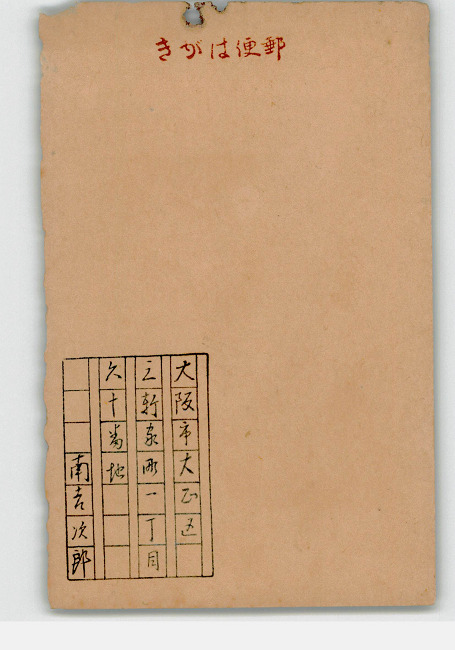 きがは便郵
大阪市大正区
三軒家町一丁目
六十番地
南吉次郎